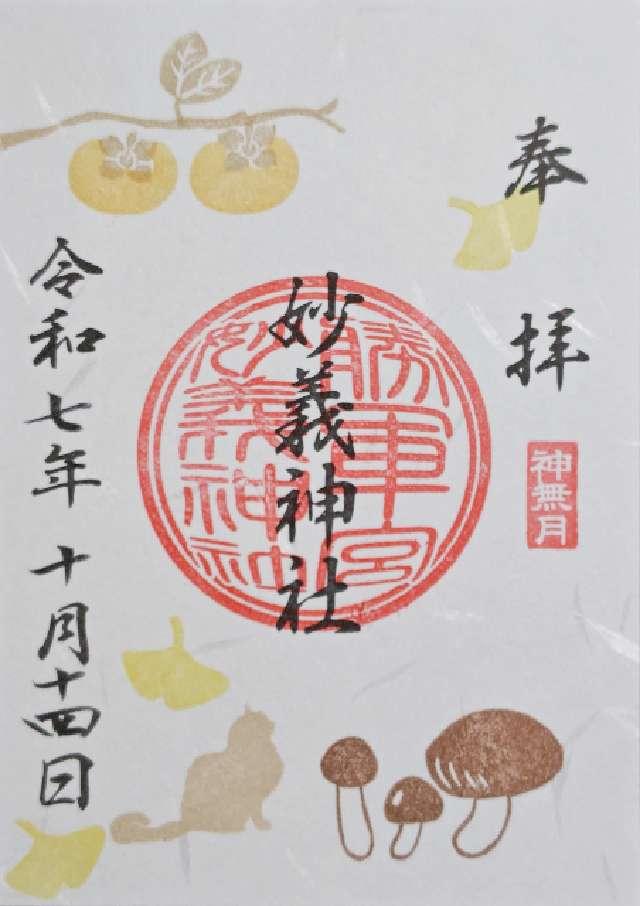 奉拝
神無月
妙義神社
勝軍宮
妙義神社
令和七年十月十四日